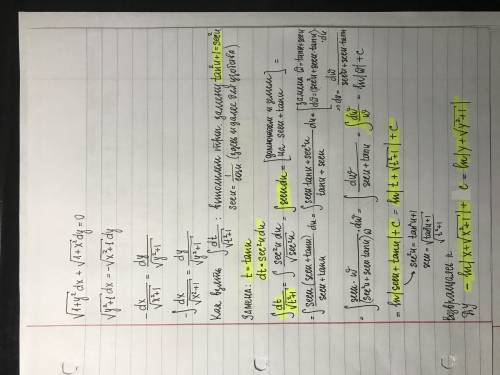 √(1+y²) dx + √(1+x²) dy = 0
√(y²+1) dx = -√(x²+1) dy
- dx/√(x²+1) = dy/√(y²+1)
∫ dx/√(x²+1) = ∫ dy/√(y²+1)
Как взять ∫ dt/√(t²+1) : выполним триг. замену tan²u+1=sec²u
secu = 1/cosu (здесь и далее для удобства)
Замена: t = tanu
dt = sec²u du
∫ dt/√(t²+1) = ∫ sec²u du/√(sec²u) = ∫ secu du = [домножим и делим на secu + tanu] =
= ∫ secu (secu + tanu)/(secu + tanu) du = ∫ (secu tanu + sec²u)/(tanu + secu) du = [замена ω = tanu + secu dω = (sec²u + secu tanu) du ⇒ du = dω/(sec²u + secu tanu)]
= ∫ secu · ω/((sec²u + secu tanu) ω) dω = ∫ dω/(secu + tanu) = ∫ dω/ω = ln|ω| + C
= ln|secu + tanu| + C = ln|t + √(t²+1)| + C
sec²u = tan²u+1
secu = √(tan²u+1)
√(t²+1)
Возвращаемся к
ДУ - ln|x + √(x²+1)| + C = ln|y + √(y²+1)|